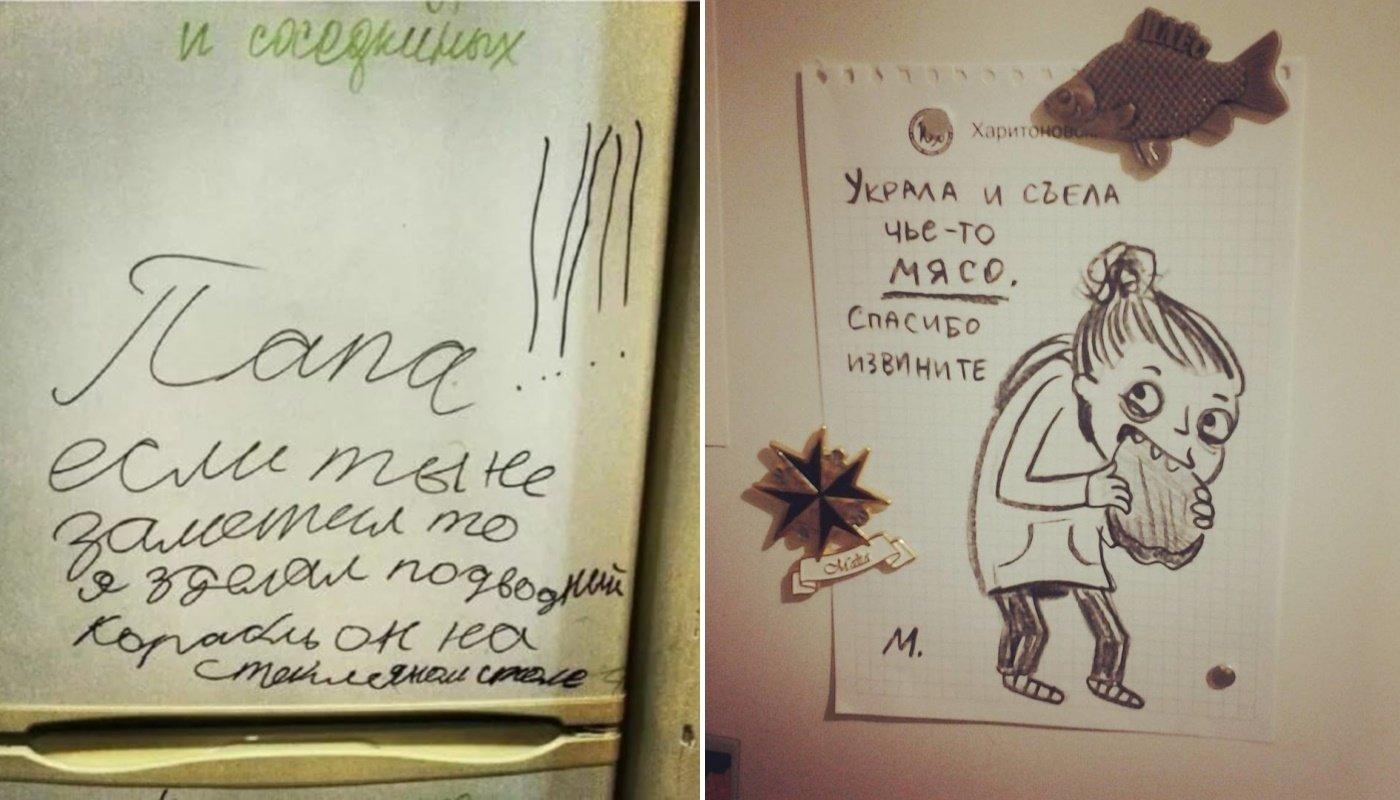 и соседкиных
Папа!!!...
если ты не
заметил то
я зделал подводний
корабль он на
стекляном столе
Харитоновск
Украла и съела
чье-то
мясо.
Спасибо
извините
М.